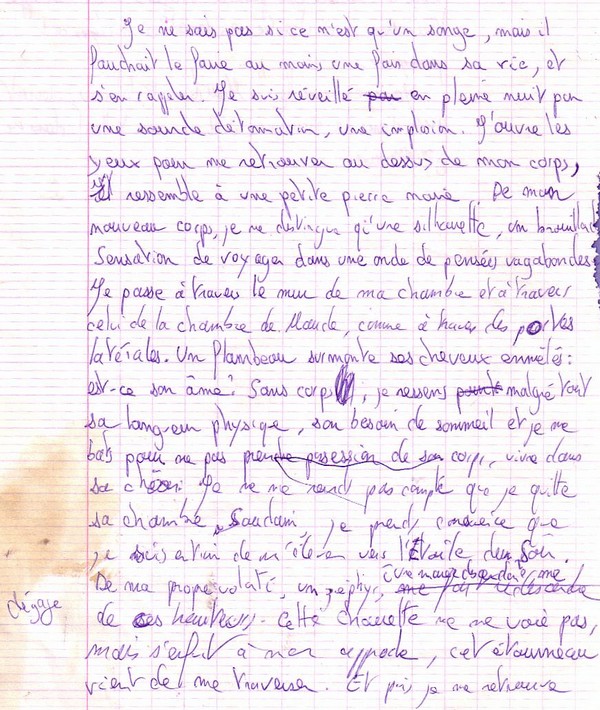 Je ne sais pas si ce n'est qu'un songe, mais il
faudrait le faire au moins une fois dans sa vie, et
s'en rappeler. Je suis réveillé par en pleine nuit par
une sourde détonation, une implosion. J'ouvre les
yeux pour me retrouver au dessus de mon corps,
Il ressemble à une petite pierre noire. De mon
nouveau corps, je ne distingue qu'une silhouette, un brouillard
Sensation de voyager dans une onde de pensées vagabondes
Je passe à travers le mur de ma chambre et à travers
celui de la chambre de Maude, comme à travers des portes
latérales. Un flambeau surmonte ses cheveux emmêlés :
est-ce son âme? Sans corps, je ressens malgré tout
sa langueur physique, son besoin de sommeil et je me
bats pour ne pas prendre possession de son corps, vivre dans
sa chair. Je ne me rends pas compte que je quitte
sa chambre. Soudain je prends conscience que
je suis entrain de m'élever vers l'Étoile du Soir.
De ma propre volonté, un zéphyr,
une nuage descendante me
dégage
de ces hauteurs. Cette chouette ne me voie pas,
mais s'enfuit à mon approche, cet étourneau
vient de me traverser. Et puis je me retrouve